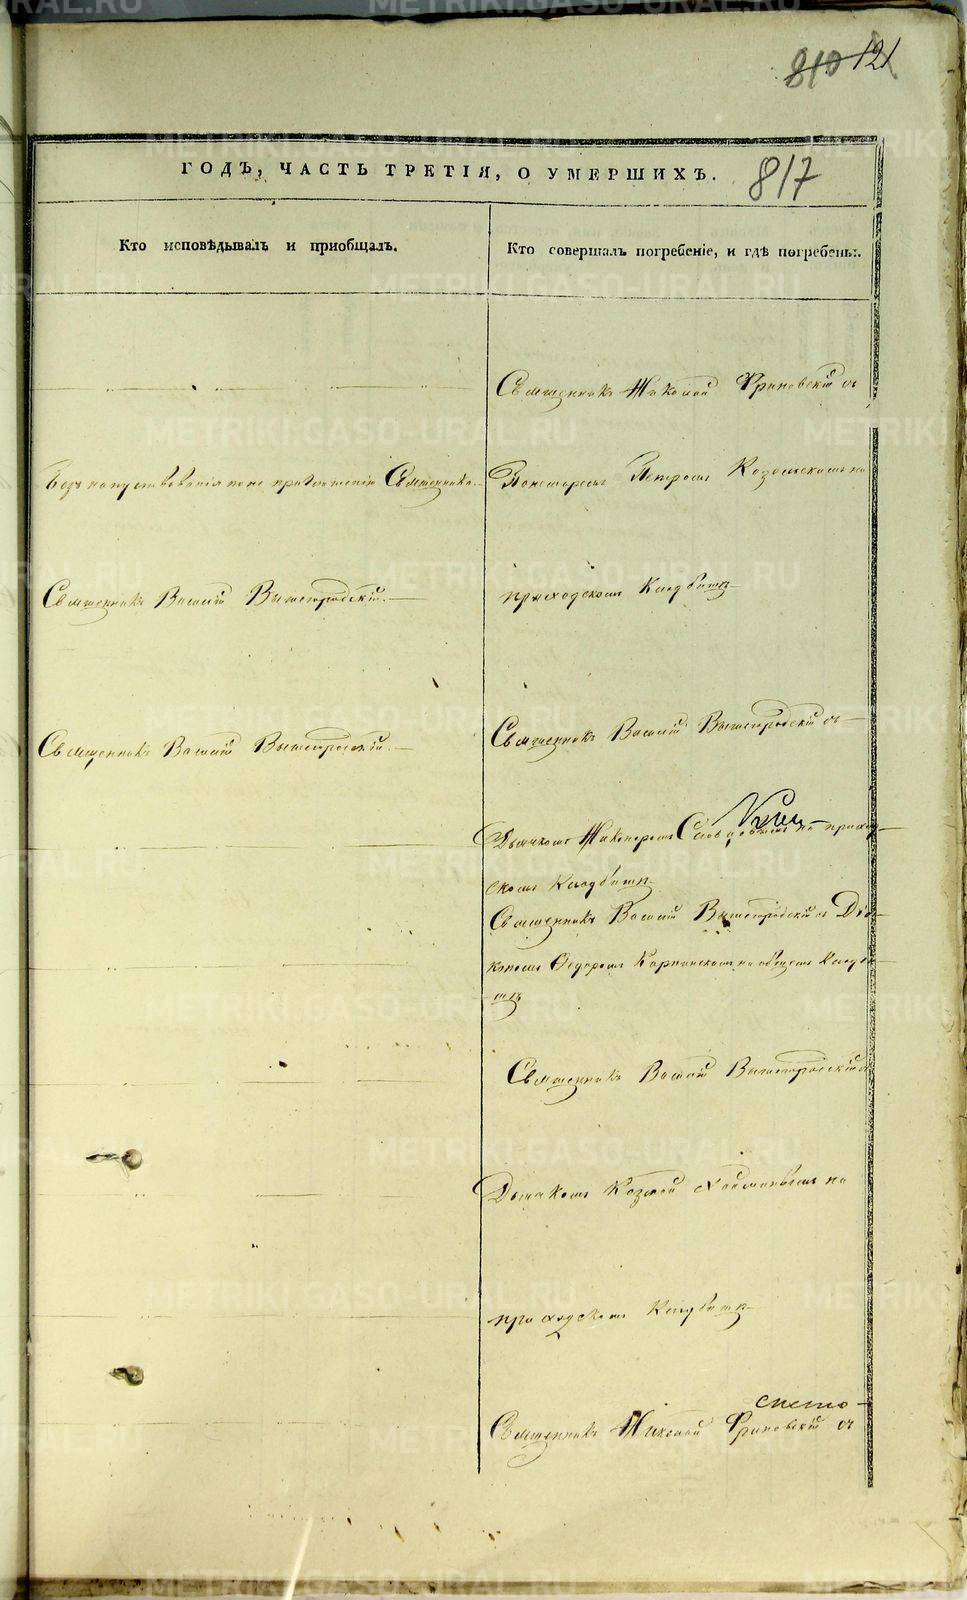 810 121
817
ГОДЪ, ЧАСТЬ ТРЕТІЯ, О УМЕРШИХЪ.
Кто исповѣдывалъ и приобщалъ.
Кто совершалъ погребеніе, и гдѣ погребены.
Священникъ Николай Фриновскій съ
Священника
Пономаремъ Петромъ на
Священникъ Василій Вышегородскій.
приходскомъ Кладбищѣ
Священникъ Василій Вышегородскій.
Священникъ Василій Вышегородскій съ
Дьячкомъ Никаноромъ на приход
скомъ Кладбищѣ
Священникъ Василій Вышегородскій съ Діа
кономъ Ѳедоромъ Карпинскимъ на общемъ Кладби
щѣ
Священникъ Василій Вышегородскій съ
Дьячкомъ Козмой на
приходскомъ Кладбищѣ
Священникъ Николай Фриновскій съ
METRIKI.GASO-URAL.RU